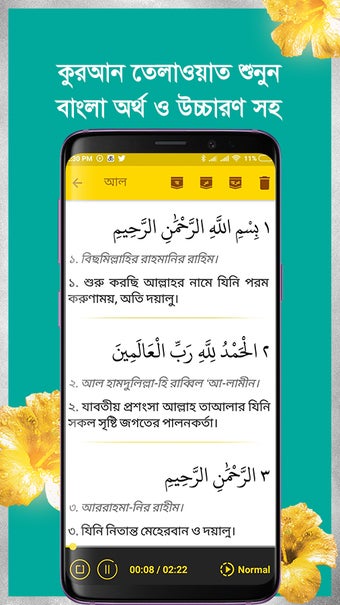 কুরআন তেলাওয়াত শুনুন
বাংলা অর্থ ও উচ্চারণ সহ
:30 PM
11%
আল
١ بِسْمِ اللَّهِ الرَّحْمَٰنِ الرَّحِيمِ
১. বিছমিল্লাহির রাহমানির রাহিম।
১. শুরু করছি আল্লাহর নামে যিনি পরম
করুণাময়, অতি দয়ালু।
٢ الْحَمْدُ لِلَّهِ رَبِّ الْعَالَمِينَ
২. আল হামদুলিল্লা-হি রাব্বিল ‘আ-লামীন।
২. যাবতীয় প্রশংসা আল্লাহ তাআলার যিনি
সকল সৃষ্টি জগতের পালনকর্তা।
٣ الرَّحْمَٰنِ الرَّحِيمِ
৩. আররাহমা-নির রাহীম।
৩. যিনি নিতান্ত মেহেরবান ও দয়ালু।
00:08 / 02:22 Normal